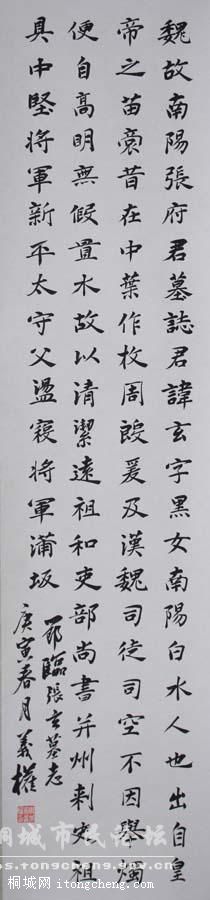 魏故南陽張府君墓誌君諱玄字黑女南陽白水人也出自皇
帝之苗裔昔在中葉作牧周殷爰及漢魏司徒司空不因舉燭
便自高明無假置水故以清潔遠祖和吏部尚書并州刺史祖
具中堅將軍新平太守父盪寇將軍蒲坂
節臨張玄墓志
庚寅春月義權
桐城市民论坛
桐城网 itongcheng.com